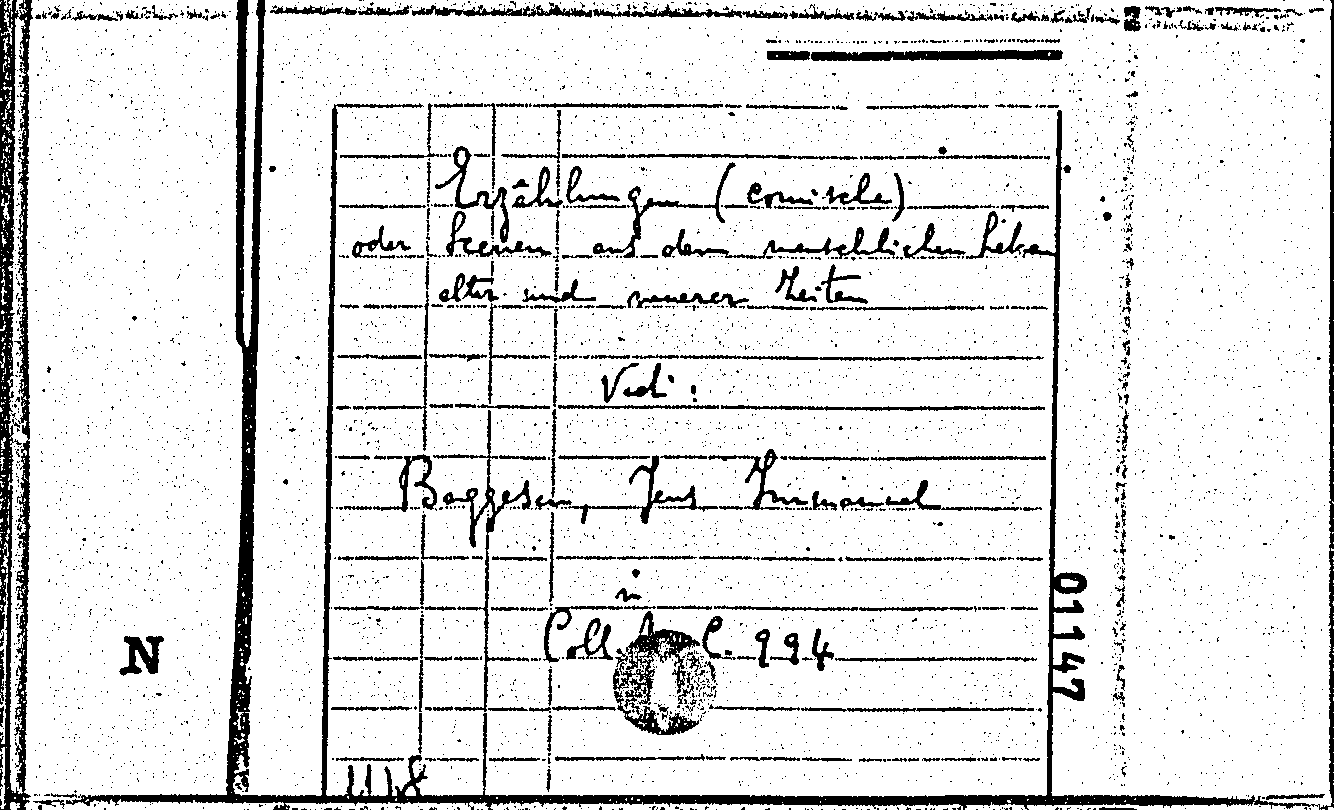 Erzählungen (comische)
oder Scenen aus dem menschlichen Leben
alter und neuerer Zeiten
Vedi:
Baggesen, Jens Immanuel
in
Coll. C. 994
01147
N